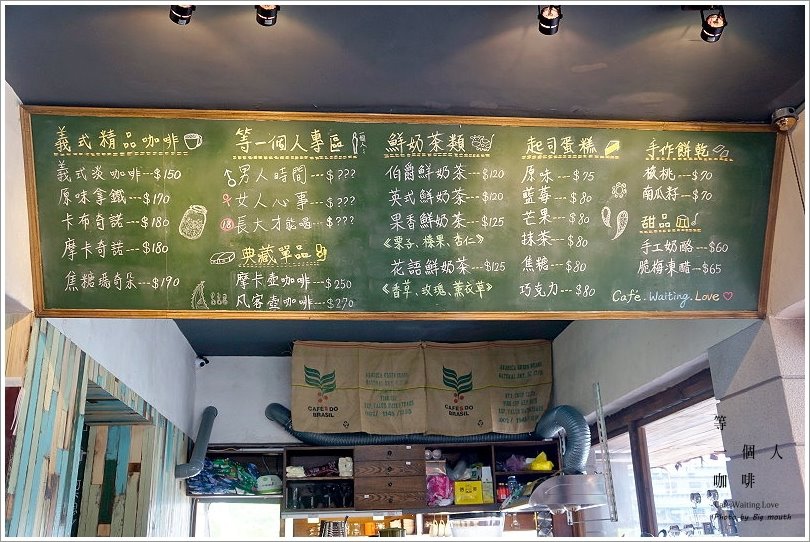 義式精品咖啡
義式淡咖啡---$150
原味拿鐵---$170
卡布奇諾---$180
摩卡奇諾---$180
焦糖瑪奇朵---$190
等一個人專區
男人時間---$???
女人心事---$???
18 長大才能喝---$???
典藏單品
摩卡壺咖啡---$250
風客壺咖啡---$270
鮮奶茶類
伯爵鮮奶茶---$120
英式鮮奶茶---$120
果香鮮奶茶---$125
《栗子、榛果、杏仁》
花語鮮奶茶---$125
《香草、玫瑰、薰衣草》
起司蛋糕
原味---$75
藍莓---$80
芒果---$80
抹茶---$80
焦糖---$80
巧克力---$80
手作餅乾
核桃---$70
南瓜籽---$70
甜品
手工奶酪---$60
脆梅凍醋---$65
Café.Waiting.Love
CAFÉS DO
BRASIL
CAFÉS DO
BRASIL
等一個人
咖啡
Café.Waiting.Love
Photo by Big mouth